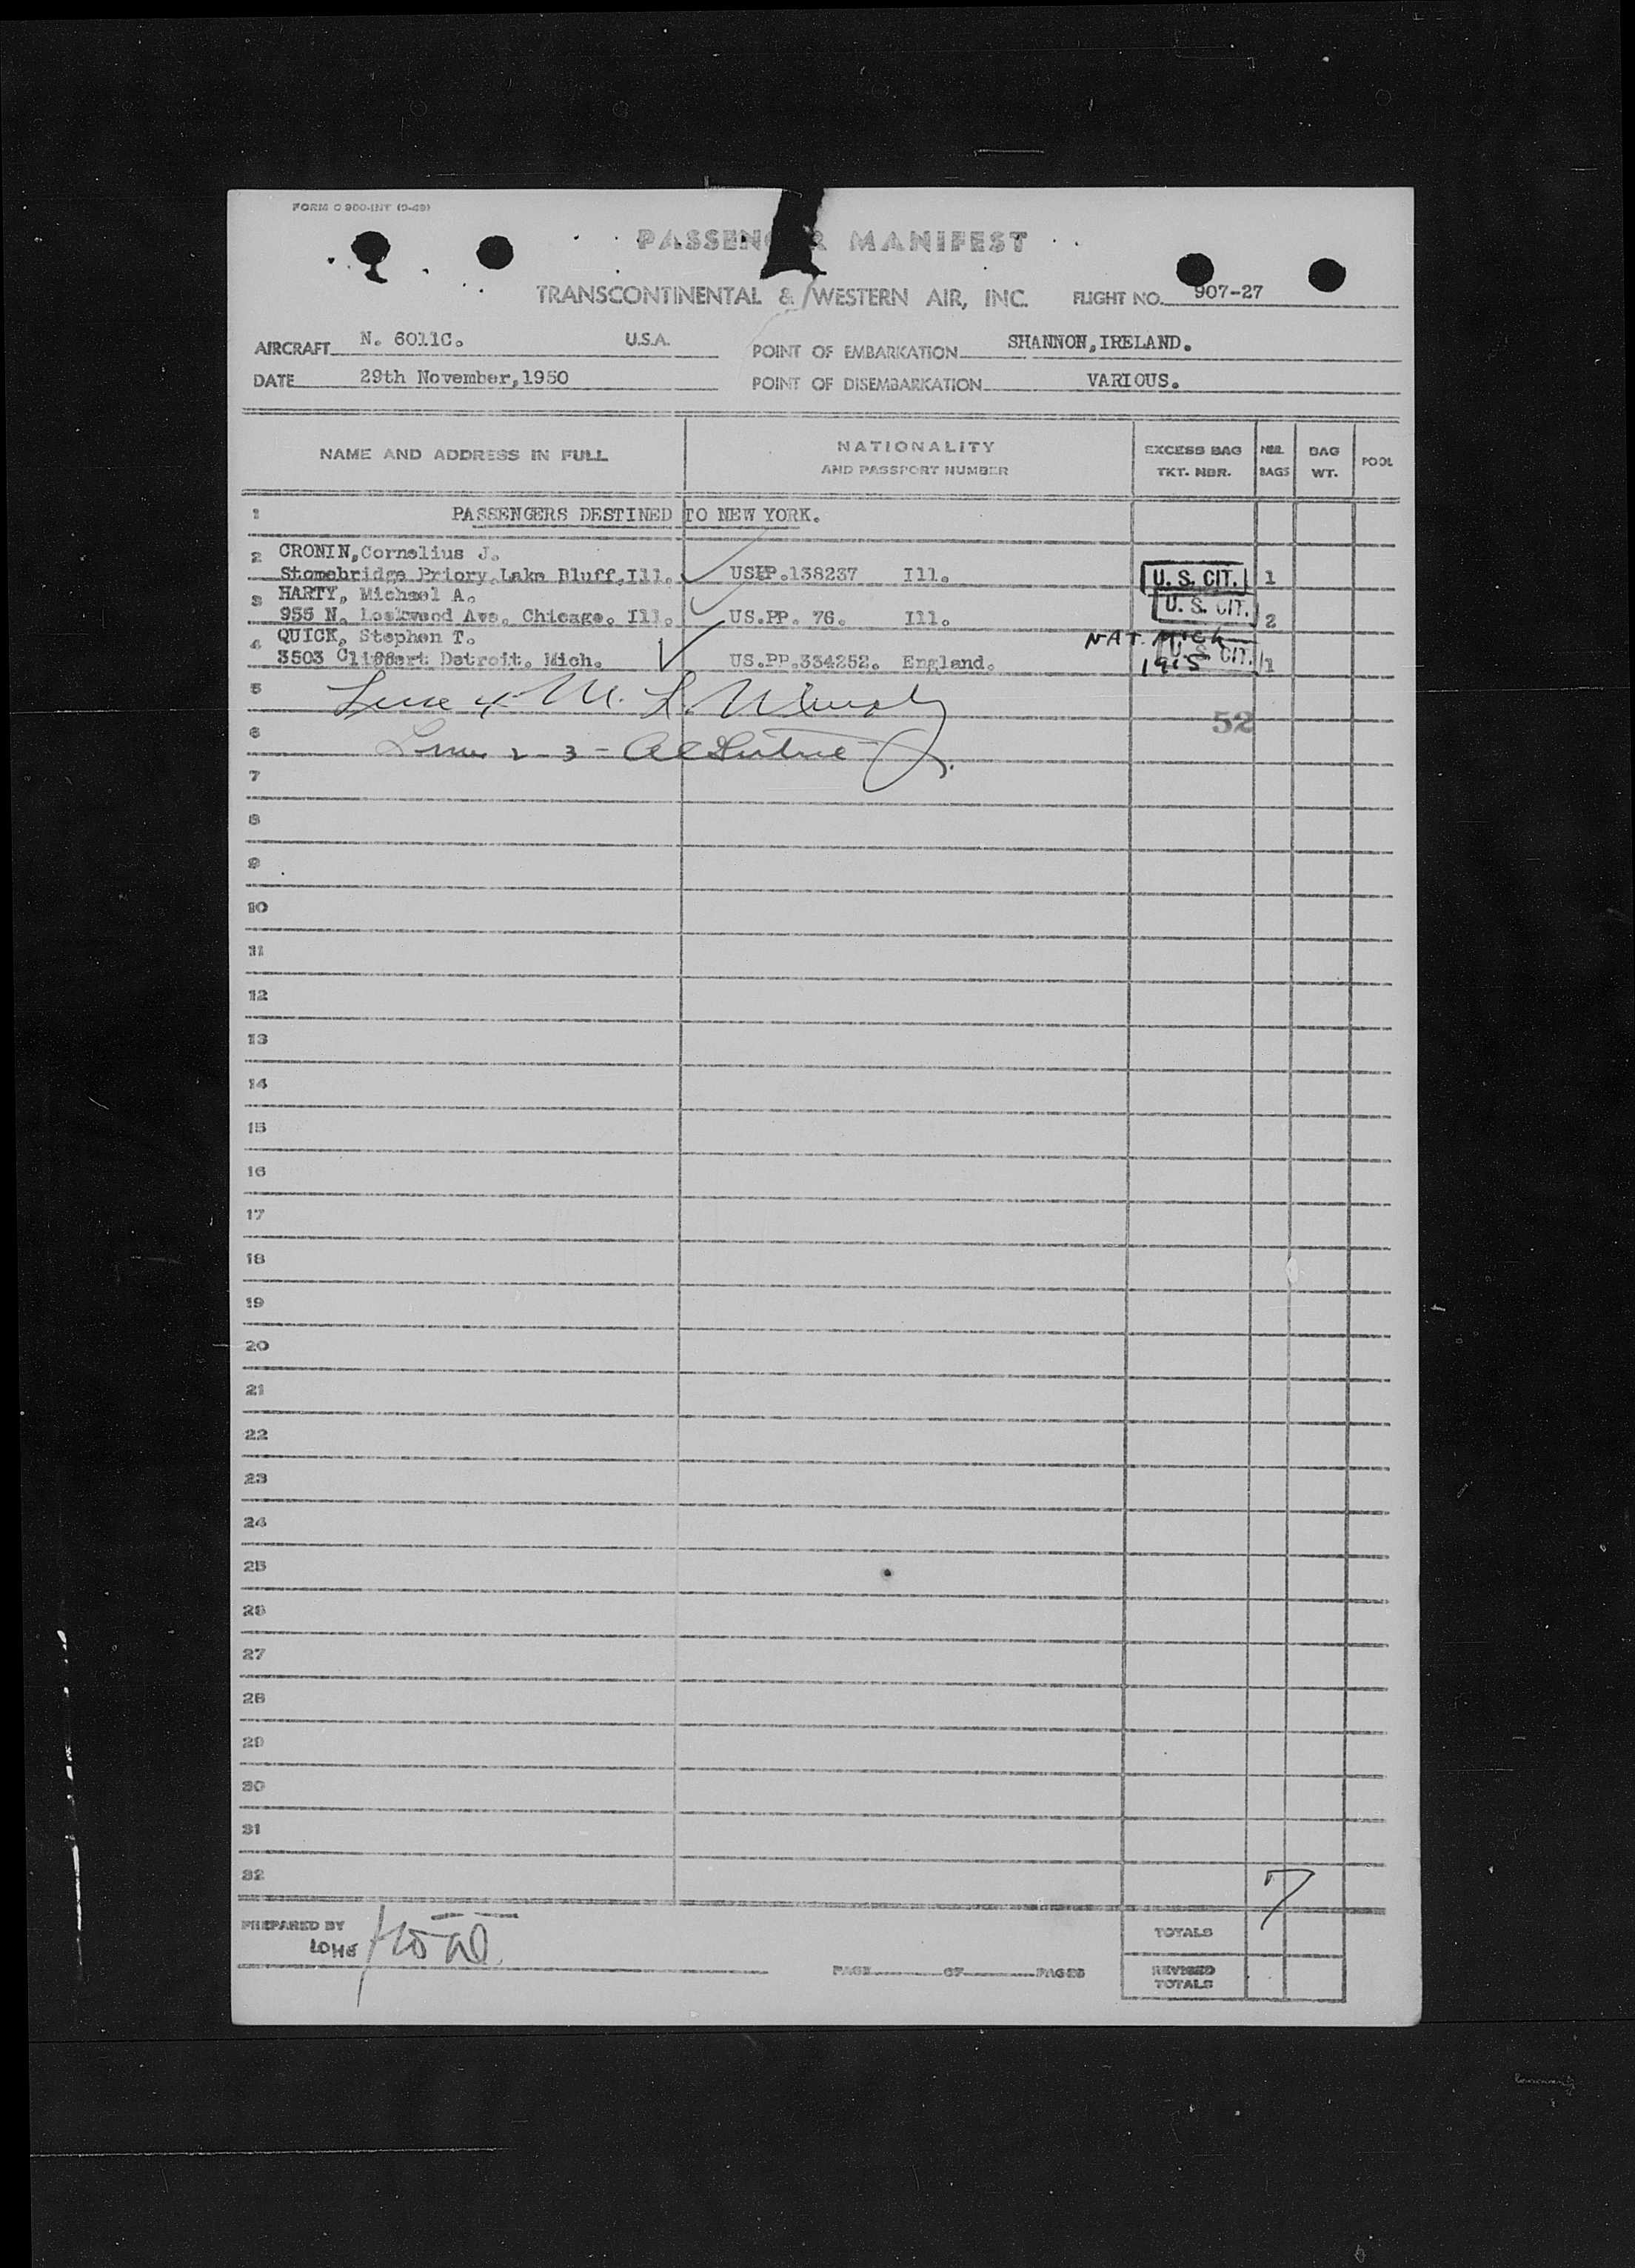 FORM O 950-INT (9-49)
PASSENGER MANIFEST
TRANSCONTINENTAL & WESTERN AIR, INC. FLIGHT NO. 907-27
AIRCRAFT N. 6011C. U.S.A. POINT OF EMBARKATION SHANNON,IRELAND.
DATE 29th November,1950 POINT OF DISEMBARKATION VARIOUS.
NAME AND ADDRESS IN FULL NATIONALITY AND PASSPORT NUMBER EXCESS BAG TKT. NBR. NBR. BAGS BAG WT. POOL
1 PASSENGERS DESTINED TO NEW YORK.
2 CRONIN,Cornelius J.
Stonebridge Priory,Lake Bluff,Ill. USPP.138237 Ill. U. S. CIT. 1
3 HARTY, Michael A.
955 N. Lockwood Ave. Chicago. Ill. US.PP. 76. Ill. U. S. CIT. 2
4 QUICK, Stephen T. NAT. MICH
3503 Cliffert Detroit. Mich. US.PP.334252. England. 1915 U. S. CIT. 1
5 Line 4 M. L.
52
6 Lines 2-3 -
7
8
9
10
11
12
13
14
15
16
17
18
19
20
21
22
23
24
25
26
27
28
29
30
31
32
7
PREPARED BY
PAGE OF PAGES
TOTALS
REVISED TOTALS